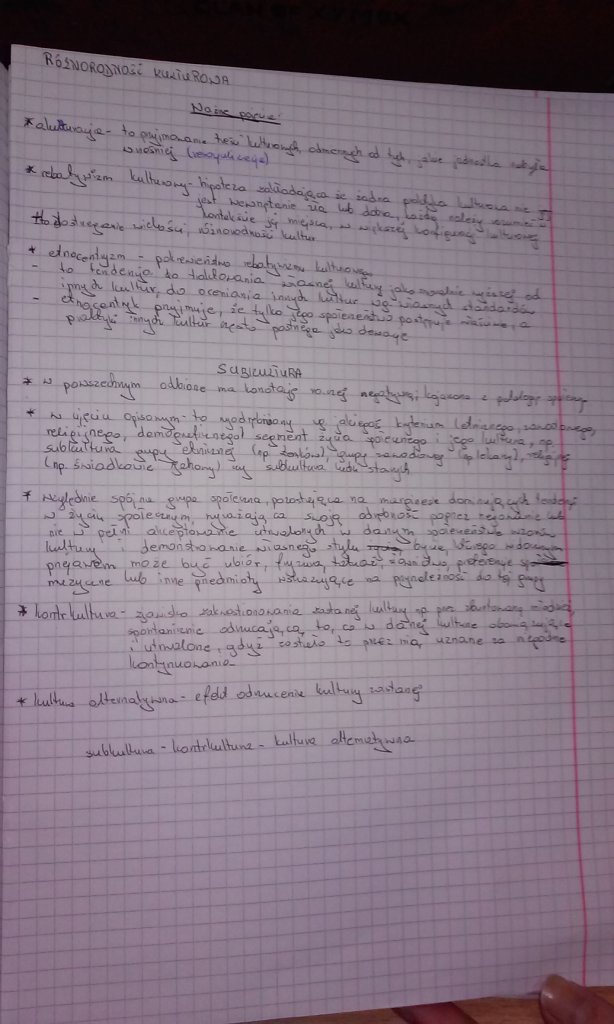 RÓŻNORODNOŚĆ KULTUROWA
Ważne pojęcia:
* akulturacja - to przyjmowanie treści kulturowych, odmiennych od tych, jakie jednostka nabyła
wcześniej
* relatywizm kulturowy - hipoteza zakładająca że żadna praktyka kulturowa nie
jest wewnętrznie zła lub dobra, każdą należy rozumieć
kontekście jej miejsca, w większej konfiguracji kulturowej
to dostrzeganie wielości, różnorodności kultur
* etnocentyzm - przeciwieństwo relatywizmu kulturowego
- to tendencja to traktowania własnej kultury jako moralnie wyższej od
innych kultur, do oceniania innych kultur wg własnych standardów
- etnocentryk przyjmuje, że tylko jego społeczeństwo postępuje właściwie, a
praktyki innych kultur często postrzega jako dewiacje
SUBKULTURA
* w powszechnym odbiorze ma konotacje raczej negatywną, kojarzona z patologią społeczną
* w ujęciu opisowym - to wyodrębniony wg jakiegoś kryterium (etnicznego, zawodowego,
religijnego, demograficznego) segment życia społecznego i jego kultura, np.
subkultura grupy etnicznej (np grupy zawodowej (np lekarzy), religijnej
(np. świadkowie Jehowy) czy subkultura ludzi starych
* Względnie spójna grupa społeczna, pozostająca na marginesie dominujących tendencji
w życiu społecznym, wyrażająca swoją odrębność poprzez negowanie lub
nie w pełni akceptowanie utrwalonych w danym społeczeństwie wzorów
kultury i demonstrowanie własnego stylu bycia, którego widocznym
przejawem może być ubiór, fryzura, tatuaż, słownictwo, preferencje
muzyczne lub inne przedmioty wskazujące na przynależność do tej grupy
* kontrkultura - zjawisko zakwestionowania zastanej kultury np. przez zbuntowaną młodzież
spontanicznie odrzucającą to, co w danej kulturze obowiązujące
i utrwalone, gdyż zostało to przez nią uznane za niegodne
kontynuowania
* kultura alternatywna - efekt odrzucenia kultury zastanej
subkultura - kontrkultura - kultura alternatywna